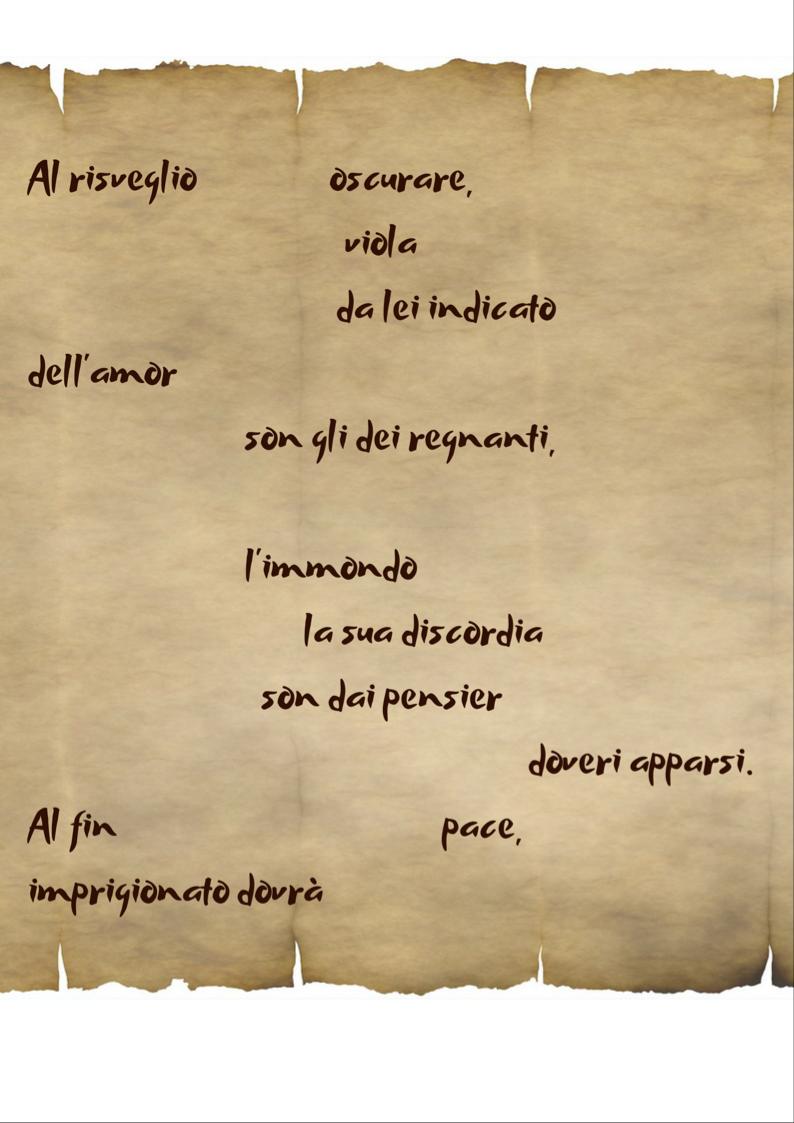 Al risveglio oscurare,
viola
da lei indicato
dell'amor
son gli dei regnanti,
l'immondo
la sua discordia
son dai pensier
doveri apparsi.
Al fin pace,
imprigionato dovrà